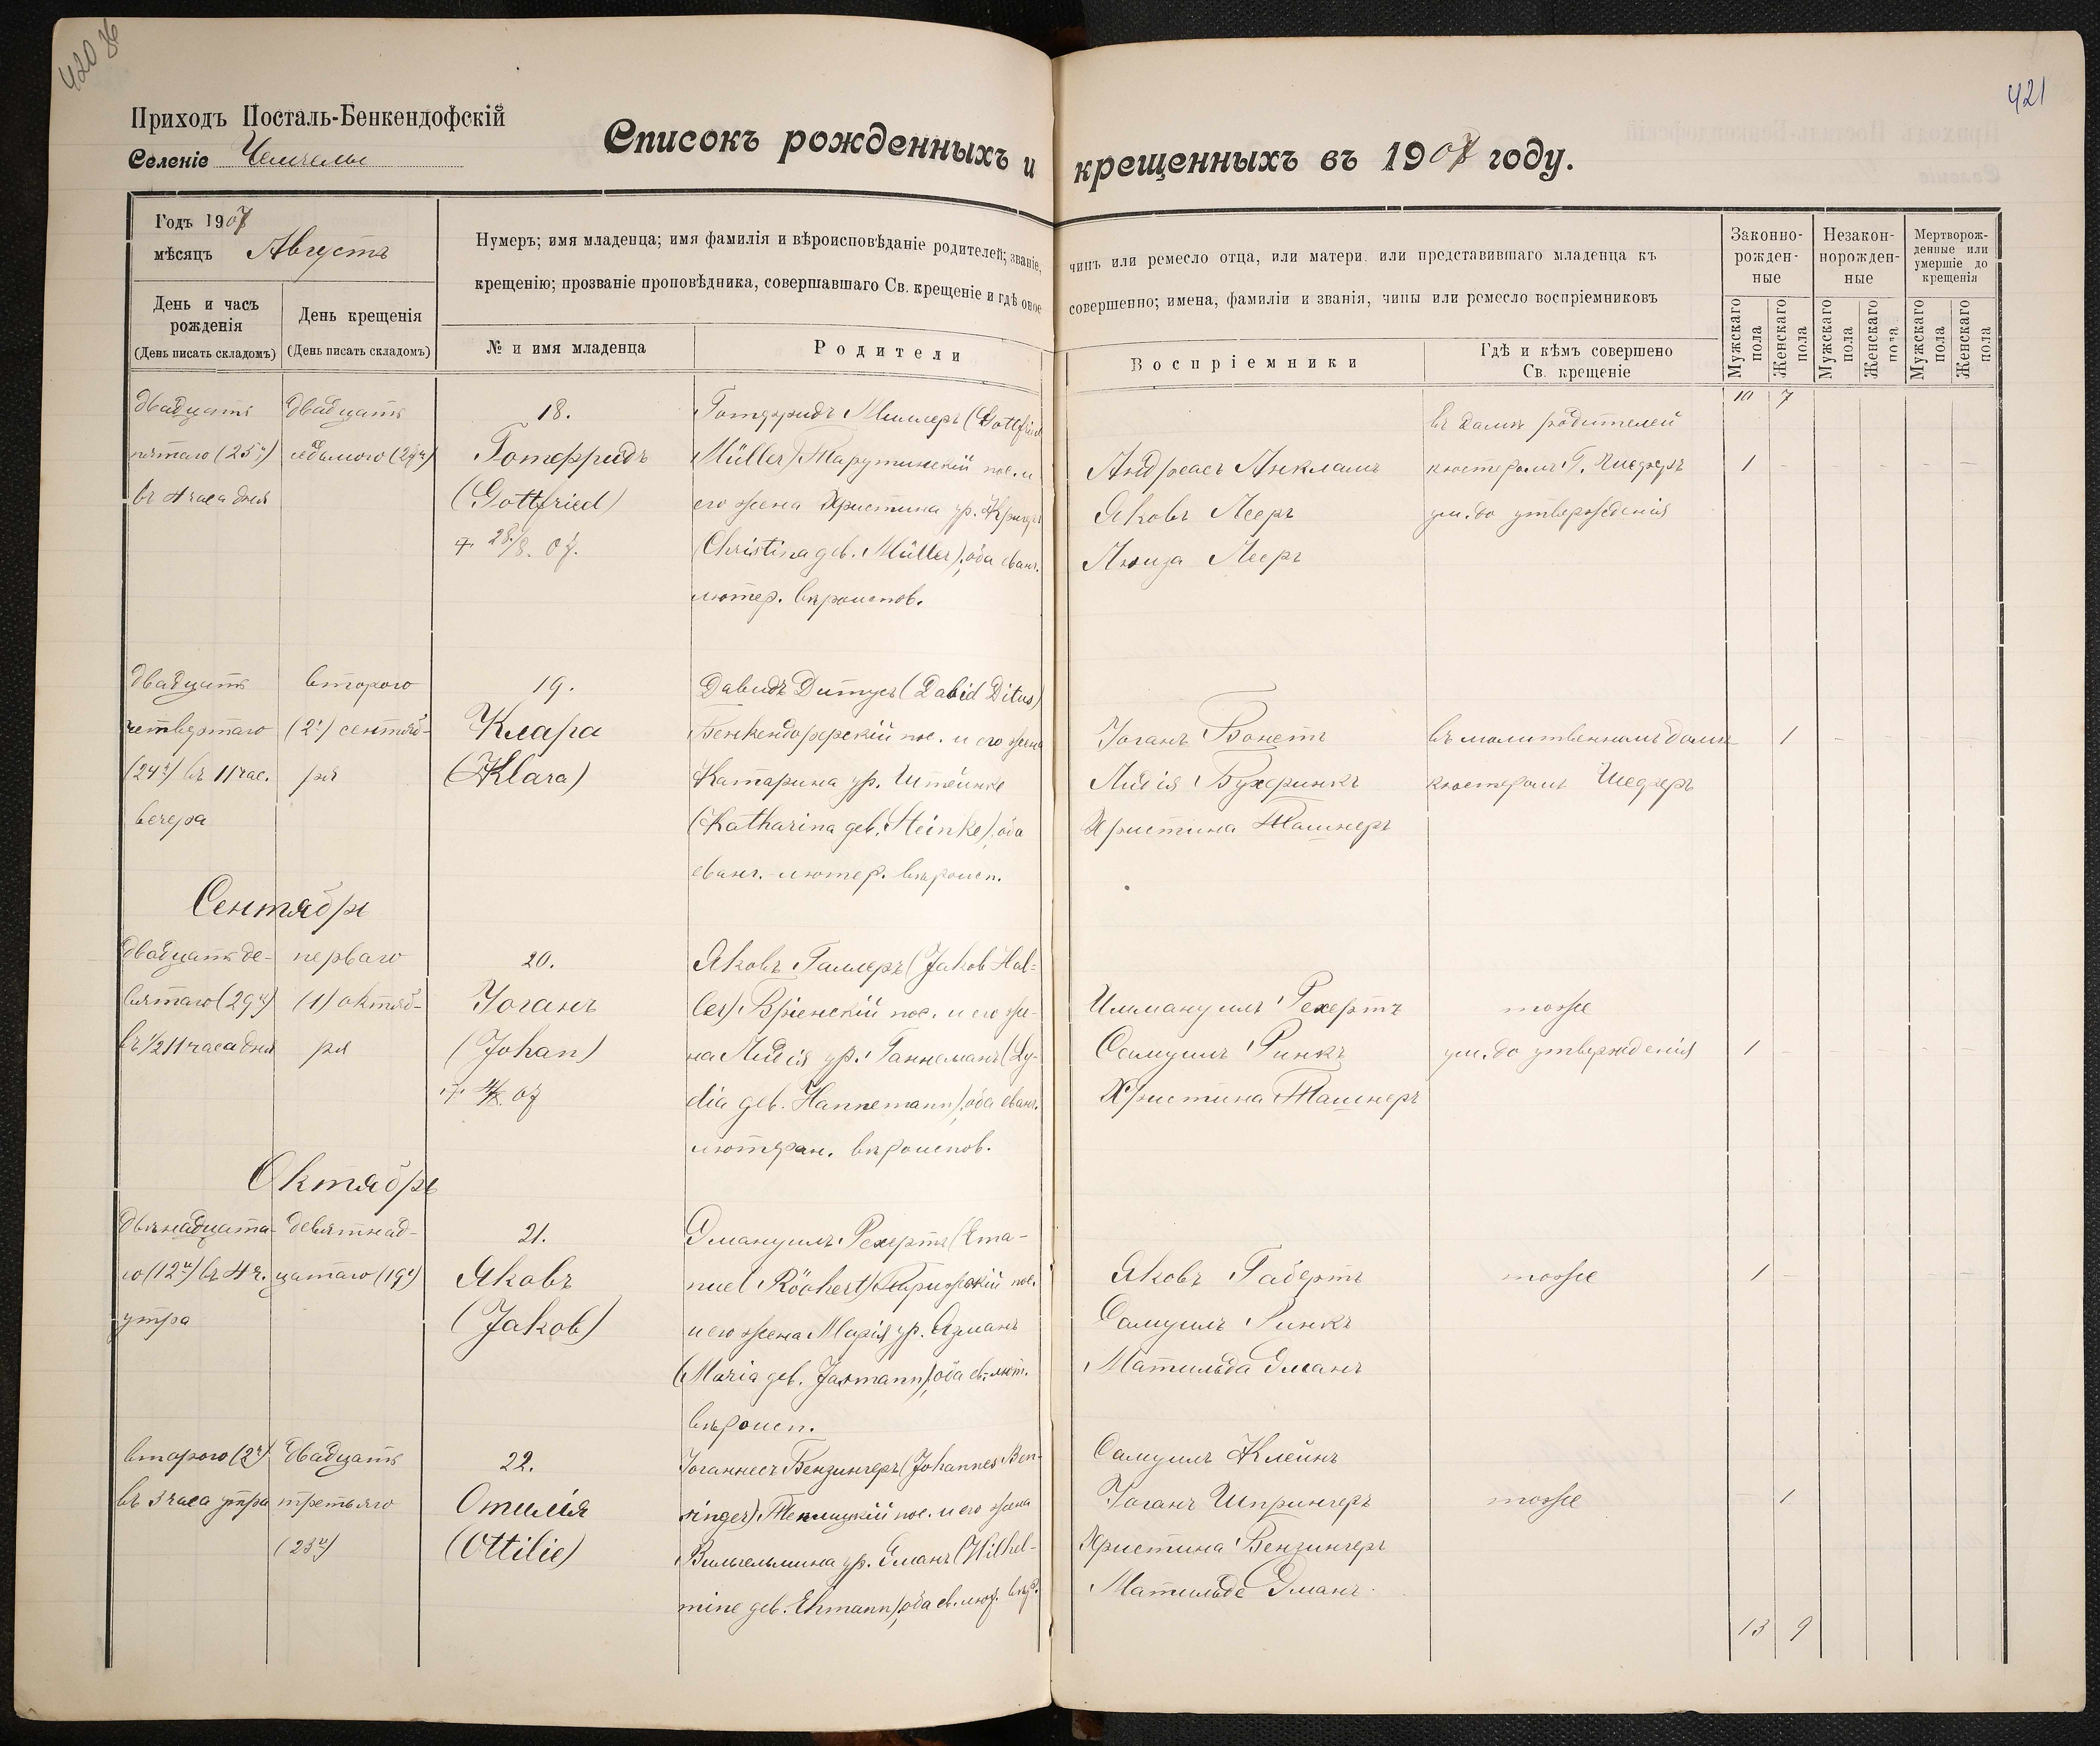 420
421
Приходъ Посталь-Бенкендофскій
Селеніе Чемчелы
Списокъ рожденныхъ и крещенныхъ въ 1907 году.
Годъ 1907
мѣсяцъ Августъ
День и часъ рожденія
(День писать складомъ)
День крещенія
(День писать складомъ)
Нумеръ; имя младенца; имя фамилія и вѣроисповѣданіе родителей; званіе, чинъ или ремесло отца, или матери или представившаго младенца къ
крещенію; прозваніе проповѣдника, совершавшаго Св. крещеніе и гдѣ оное совершенно; имена, фамиліи и званія, чины или ремесло воспріемниковъ
№ и имя младенца
Родители
Воспріемники
Гдѣ и кѣмъ совершено
Св. крещеніе
Законно-
рожден-
ные
Незакон-
норожден-
ные
Мертворож-
денные или
умершіе до
крещенія
Мужскаго пола
Женскаго пола
Мужскаго пола
Женскаго пола
Мужскаго пола
Женскаго пола
10 7
двадцать
пятаго (25го)
въ 4 часа дня
двадцать
седьмого (27го)
18.
Готфридъ
(Gottfried)
+ 28/8. 07.
Готфридъ Миллеръ (Gottfried
Müller) Тарутинскій пос. и
его жена Христина ур.
(Christina geb. Müller), оба еванг.
лютер. вѣроиспов.
Андреасъ Анкламъ
Яковъ Лееръ
Луиза Лееръ
въ домѣ родителей
кюстеромъ Г. Шеферъ
ум. до утвержденія
1
двадцать
четвертаго
(24го) въ 11 час.
вечера
второго
(2го) сентяб-
ря
19.
Клара
(Klara)
Давидъ Дитусъ (David Ditus)
Бенкендорфскій пос. и его жена
Катарина ур. Штейнке
(Katharina geb. Steinke), оба
еванг.-лютер. вѣроисп.
Іоганъ Бонетъ
Лидія
Христина Ташнеръ
въ молитвенномъ домѣ
кюстеромъ Шеферъ
1
Сентябрь
двадцать де-
вятаго (29го)
въ 1/2 11 часа дня
перваго
(1) октяб-
ря
20.
Іоганъ
(Johan)
Яковъ Галлеръ (Jakob Hal-
ler) Бріенскій пос. и его же-
на Лидія ур. Ганнеманъ (Ly-
dia geb. Hannemann), оба еванг.
лютеран. вѣроиспов.
Иммануилъ Рехертъ
Самуилъ Ринкъ
Христина Ташнеръ
тоже
ум. до утвержденія
1
Октябрь
двѣнадцата-
го (12го) въ 4 ч.
утра
девятнад-
цатаго (19го)
21.
Яковъ
(Jakob)
Эмануилъ Рехертъ (Ema-
nuel Röchert) Парижскій пос.
и его жена Марія ур.
(Maria geb.), оба ев.-лют.
вѣроисп.
Яковъ Габертъ
Самуилъ Ринкъ
Матильда Эманъ
тоже
1
второго (2го)
въ 3 часа утра
двадцать
третьяго
(23го)
22.
Отилія
(Ottilie)
Іоганнесъ Бензингеръ (Johannes Ben-
singer) Теплицкій пос. и его жена
Вильгельмина ур. Еманъ (Wilhel-
mine geb. Ehmann), оба ев. лют. вѣр.
Самуилъ Клейнъ
Іоганъ Шпрингеръ
Христина Бензингеръ
Матильда Эманъ
тоже
1
13 9